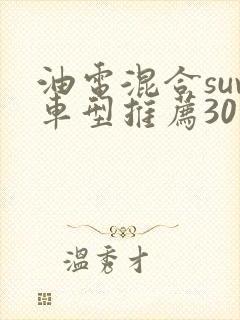 油電混合suv
車型推薦30
溫秀才